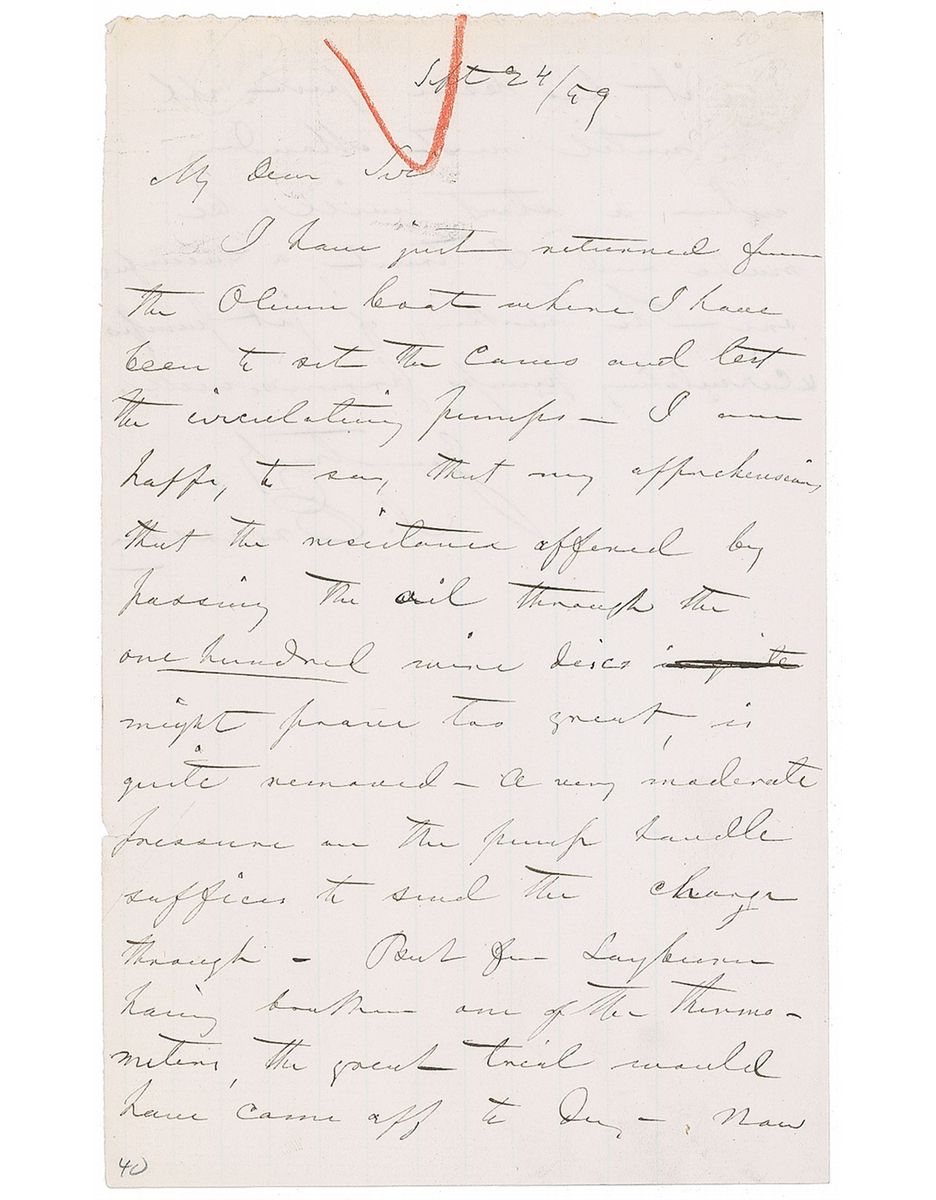 Sept 24/59
My Dear Sir
I have just returned from
the Olium boat where I have
been to set the Cams and test
the circulating pumps – I am
happy, to say, that my apprehensions
that the resistance offered by
passing the oil through the
one hundred wire discs is quite
might prove too great, is
quite removed – a very moderate
pressure on the pump handle
suffices to send the charge
through – But for Layburn
having broken one of the thermo–
meters, the great trial would
have come off to Day – Now
40